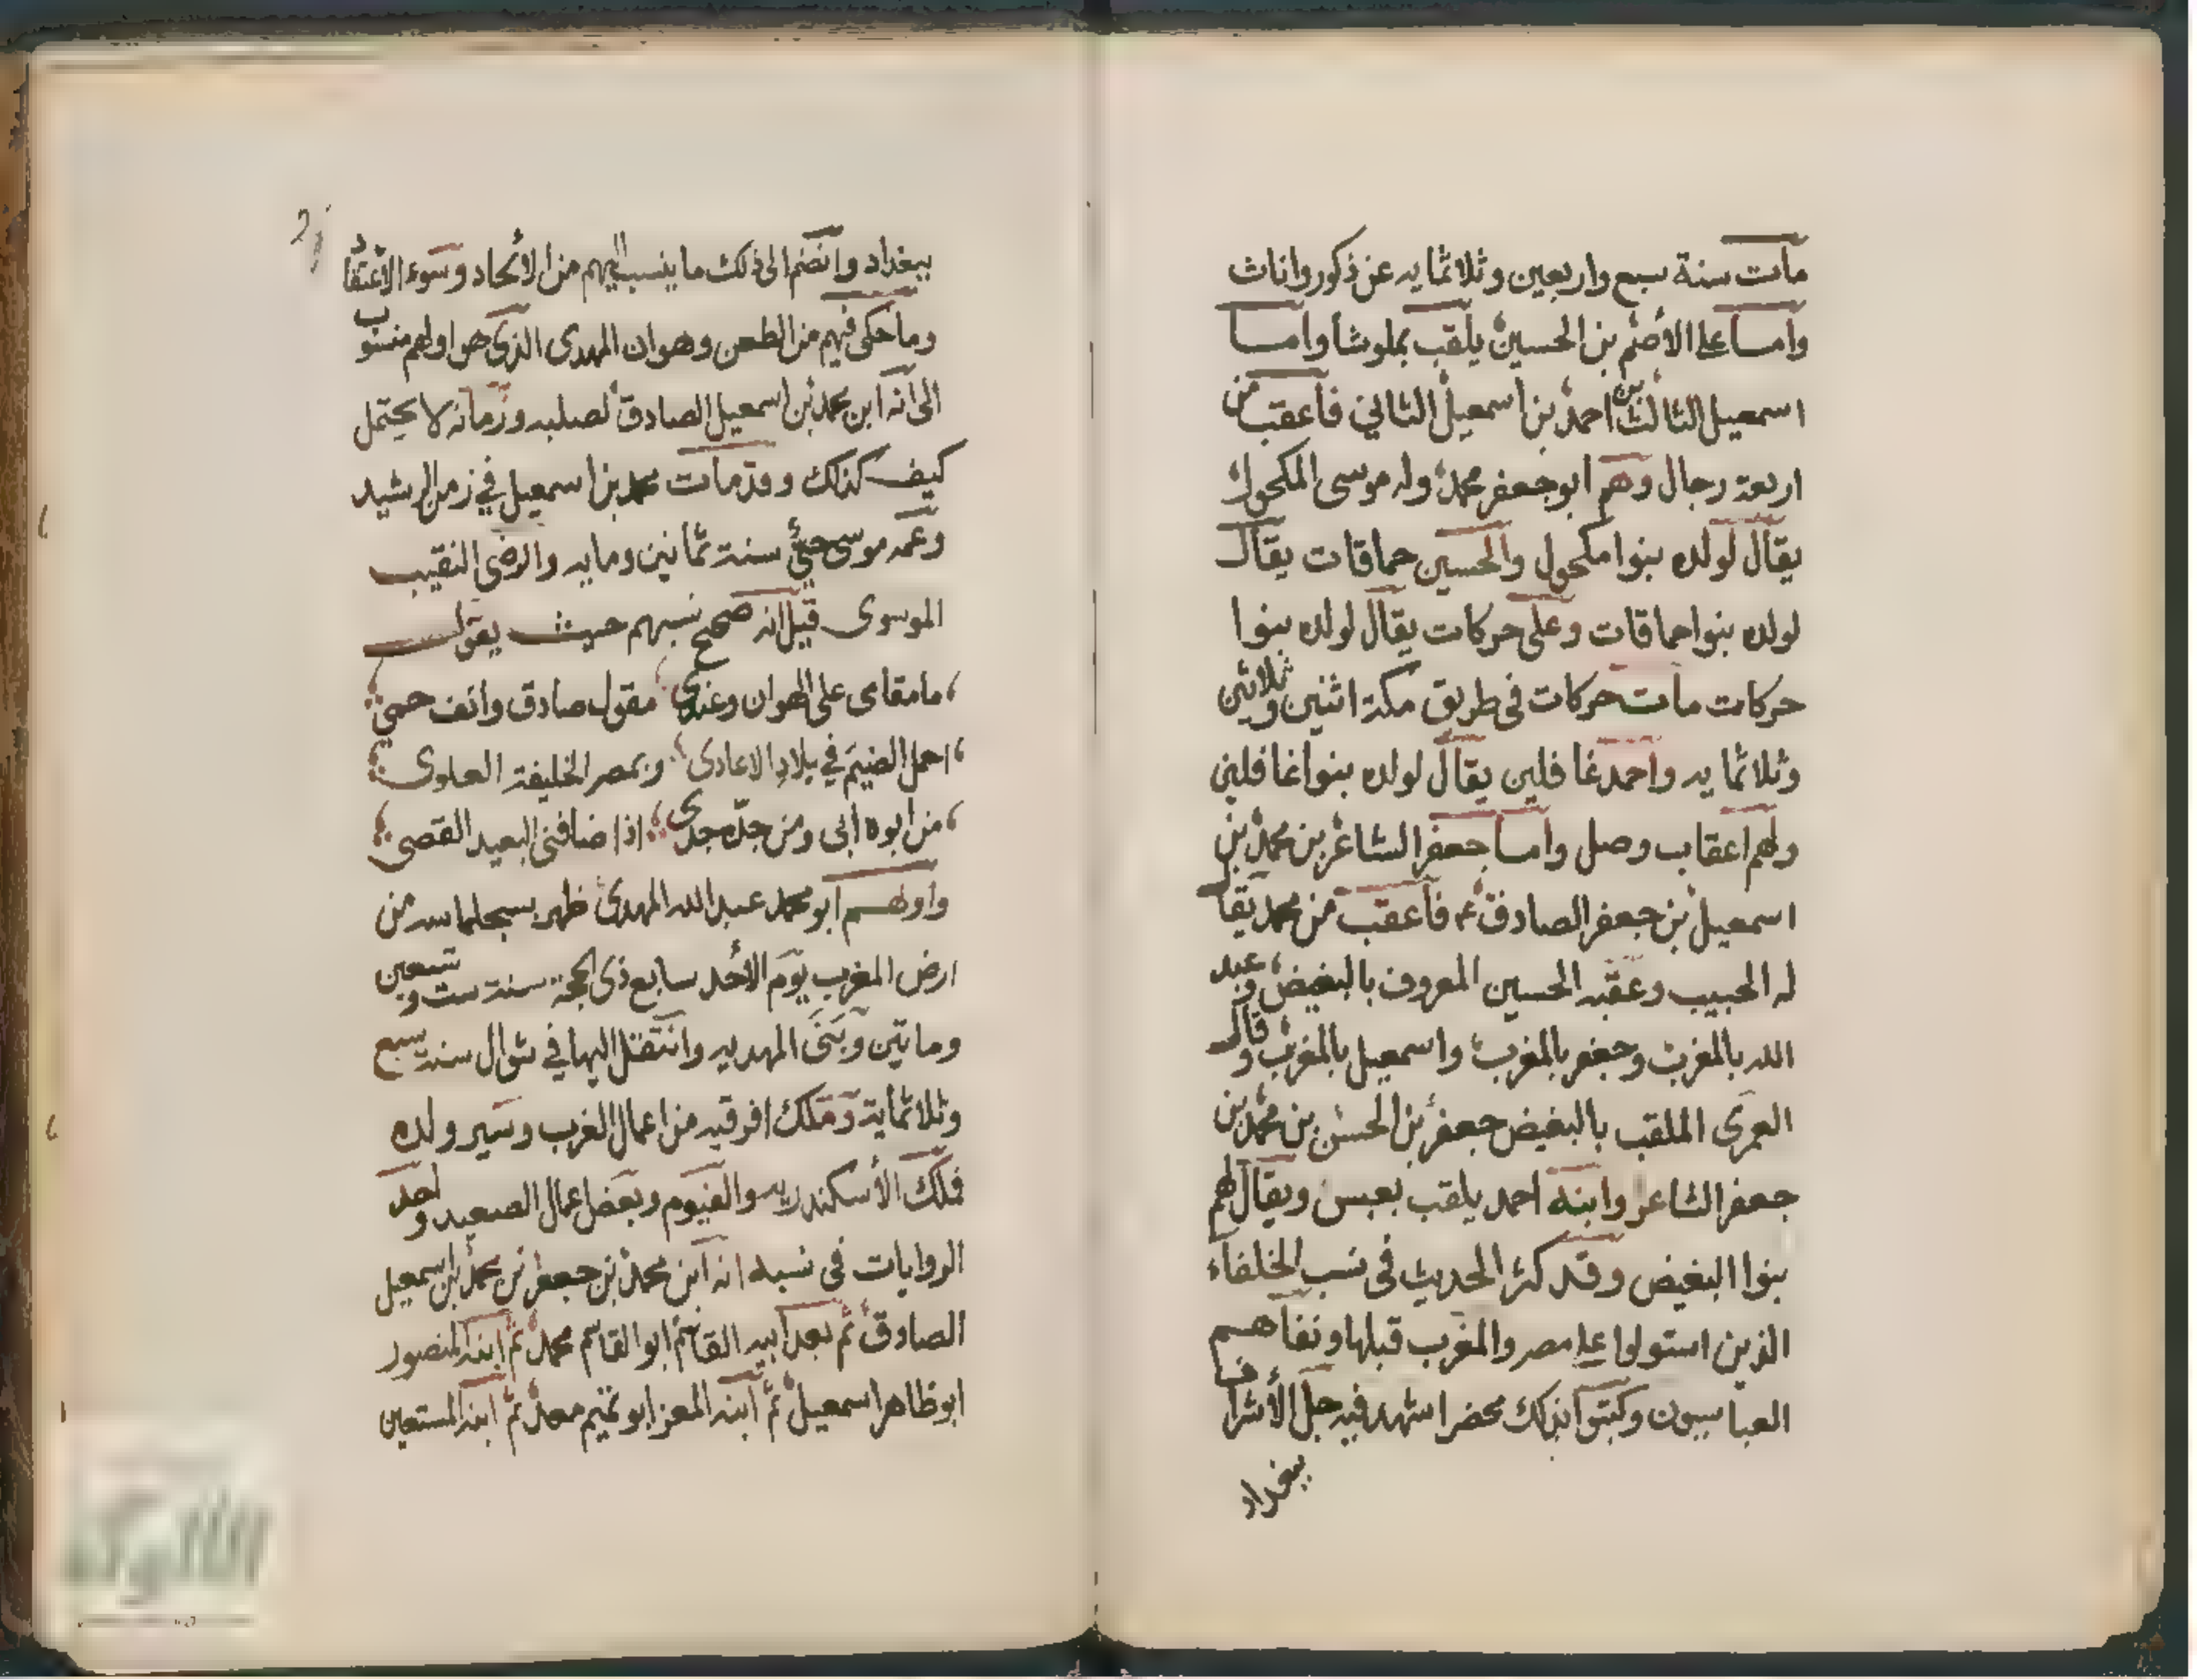 مات سنة سبع واربعين وثلاثمايه عن ذكور واناث
وأما على الأصم بن الحسين يلقب بملوشا وأما
اسمعيل الثالث بن احمد بن اسمعيل الثاني فأعقب من
اربعة رجال وهم ابو جعفر محمد وله موسى المكحول
يقال لولده بنوا مكحول والحسين حماقات يقال
لولده بنوا حماقات وعلى حركات يقال لولده بنوا
حركات مات حركات في طريق مكة اثنين وثلاثين
وثلاثمايه واحمد غافلين يقال لولده بنوا غافلين
ولهم اعقاب وصل وأما جعفر الشاعر بن محمد بن
اسمعيل بن جعفر الصادق فأعقب من محمد يقال
له الحبيب وعقبه الحسين المعروف بالبغيض وعبد
الله بالمغرب وجعفر بالمغرب واسمعيل بالمغرب وقال
العمرى الملقب بالبغيض جعفر بن الحسن بن محمد بن
جعفر الشاعر وابنه احمد يلقب بعبس ويقال لهم
بنوا البغيض وقد كثر الحديث فى نسب الخلفاء
الذين استولوا على مصر والمغرب قبلها ونفاهم
العباسيون وكتبوا بذلك محضرا شهد فيه جل الأشراف
ببغداد
ببغداد وانضم الى ذلك ما ينسب اليهم من الالحاد وسوء الاعتقاد
وما حكى فيهم من الطعن وهو ان المهدى الذى هو اولهم منسوب
الى انه ابن محمد بن اسمعيل الصادق لصلبه وزمانه لا يحتمل
كيف كذلك وقد مات محمد بن اسمعيل في زمن الرشيد
وعمه موسى حيى سنة ثمانين ومايه والرضى النقيب
الموسوى قيل انه صحح نسبهم حيث يقول
ما مقامى على الهوان وعندى مقول صادق وانف حمي
احمل الضيم في بلاد الاعادى وبمصر الخليفة العلوى
من ابوه ابى ومن جده جدى اذا ضافنى البعيد القصى
واولهم ابو محمد عبد الله المهدى ظهر بسجلماسه من
ارض المغرب يوم الأحد سابع ذى الحجة سنة ست وتسعين
وماتين وبنى المهديه وانتقل اليها في شوال سنة سبع
وثلاثماية وملك افرقيه من اعمال الغرب وسير ولده
فملك الأسكندريه والفيوم وبعض اعمال الصعيد واحد
الروايات فى نسبه انه ابن محمد بن جعفر بن محمد بن اسمعيل
الصادق ثم بعد ابيه القائم ابو القاسم محمد ثم ابنه المنصور
ابو ظاهر اسمعيل ثم ابنه المعز ابو تميم معد ثم ابنه المستعين